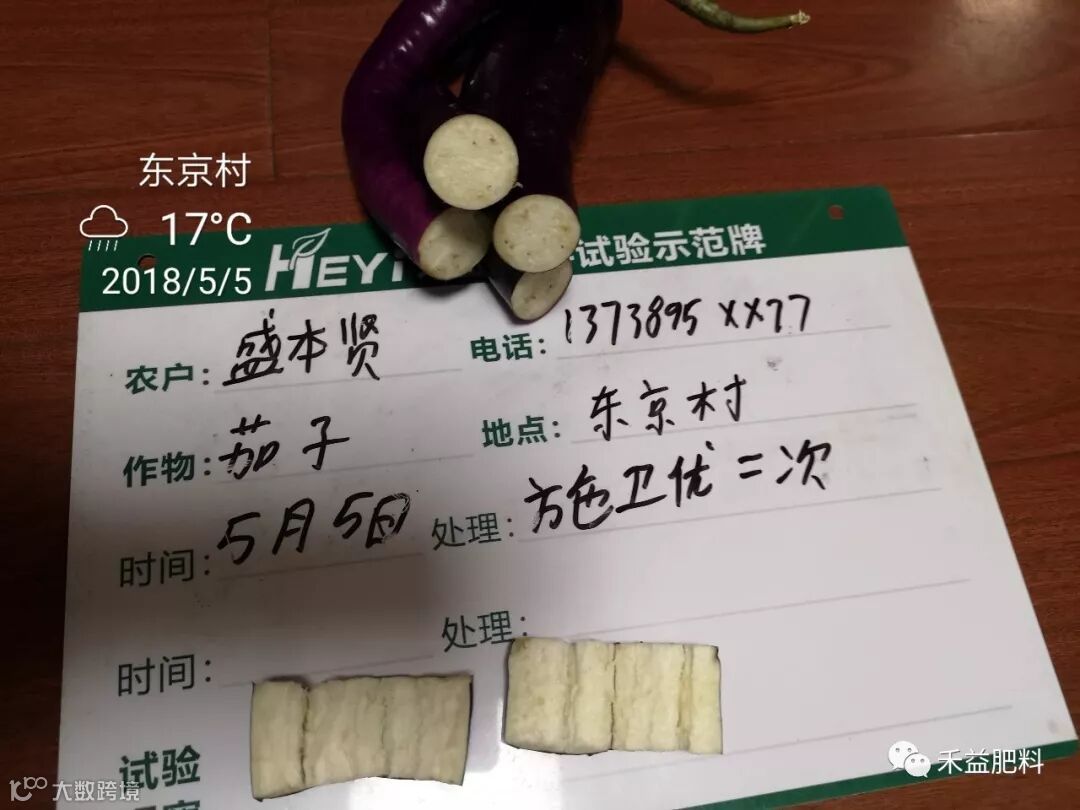 东京村
17°C
2018/5/5
HEYI 试验示范牌
农户：盛本贤 电话：1373895××77
作物：茄子 地点：东京村
时间：5月5日 处理：方色卫优二次
时间： 处理：
试验
禾益肥料
大数跨境